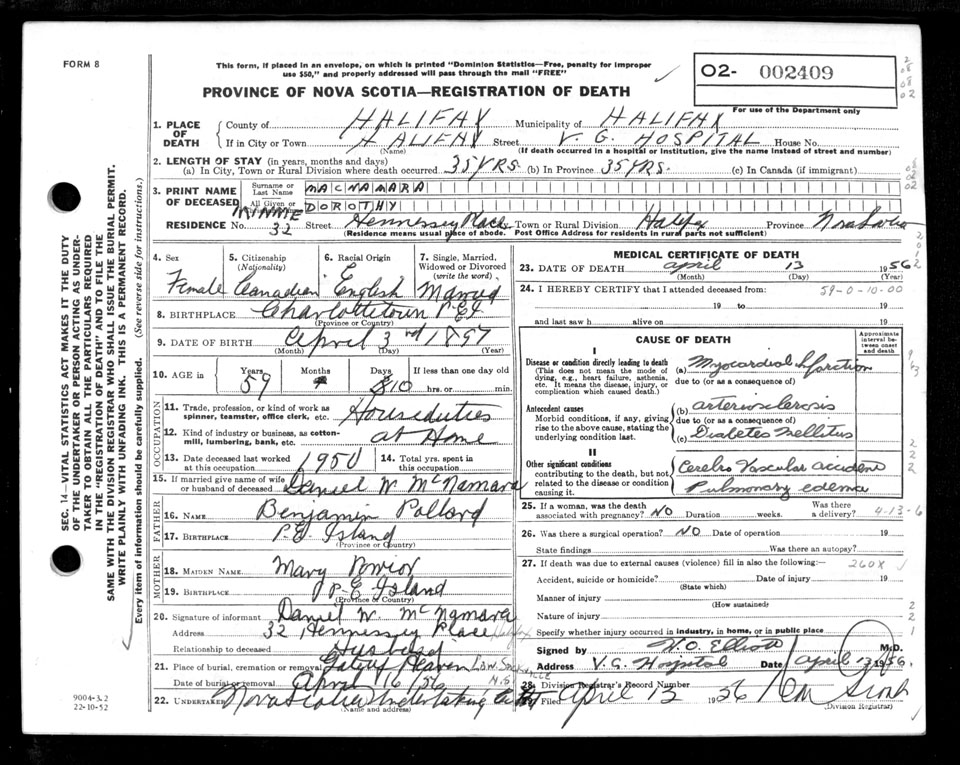 FORM 8
This form, if placed in an envelope, on which is printed "Dominion Statistics—Free, penalty for improper
use $50," and properly addressed will pass through the mail "FREE"
02- 002409
For use of the Department only
PROVINCE OF NOVA SCOTIA—REGISTRATION OF DEATH
SEC. 14—VITAL STATISTICS ACT MAKES IT THE DUTY
OF THE UNDERTAKER OR PERSON ACTING AS UNDER-
TAKER TO OBTAIN ALL THE PARTICULARS REQUIRED
IN THE "REGISTRATION OF DEATH" AND TO FILE THE
SAME WITH THE DIVISION REGISTRAR WHO SHALL ISSUE THE BURIAL PERMIT.
WRITE PLAINLY WITH UNFADING INK. THIS IS A PERMANENT RECORD.
Every item of information should be carefully supplied. (See reverse side for instructions.)
1. PLACE OF DEATH
County of HALIFAX Municipality of HALIFAX
If in City or Town HALIFAX Street V. G. HOSPITAL House No.
(Name) (If death occurred in a hospital or institution, give the name instead of street and number)
2. LENGTH OF STAY (in years, months and days)
(a) In City, Town or Rural Division where death occurred 35 YRS. (b) In Province 35 YRS. (c) In Canada (if immigrant)
3. PRINT NAME OF DECEASED
Surname or Last Name MACNAMARA
All Given or DOROTHY
MINNIE
RESIDENCE No. 32 Street Hennessey Place City, Town or Rural Division Halifax Province Nova Scotia
(Residence means usual place of abode. Post Office Address for residents in rural parts not sufficient)
4. Sex Female
5. Citizenship (Nationality) Canadian
6. Racial Origin English
7. Single, Married, Widowed or Divorced (write the word) Married
8. BIRTHPLACE Charlottetown P.E.I.
(Province or Country)
9. DATE OF BIRTH April 3rd 1897
(Month) (Day) (Year)
10. AGE in Years 59 Months Days 10 If less than one day old hrs. or min.
OCCUPATION
11. Trade, profession, or kind of work as spinner, teamster, office clerk, etc. Houseduties
12. Kind of industry or business, as cotton-mill, lumbering, bank, etc. at Home
13. Date deceased last worked at this occupation 1950 14. Total yrs. spent in this occupation
15. If married give name of wife or husband of deceased Daniel W. McNamara
FATHER
16. NAME Benjamin Pollard
17. BIRTHPLACE P.E. Island
(Province or Country)
MOTHER
18. MAIDEN NAME Mary
19. BIRTHPLACE P.E. Island
(Province or Country)
20. Signature of informant Daniel W. McNamara
Address 32 Hennessey Place Halifax
Relationship to deceased Husband
21. Place of burial, cremation or removal
Date of burial or removal April 16/56 N.S.
22. UNDERTAKER Nova Scotia Undertaking Co
(Name and address)
9004-3.2
22-10-52
MEDICAL CERTIFICATE OF DEATH
23. DATE OF DEATH April 13 1956
(Month) (Day) (Year)
24. I HEREBY CERTIFY that I attended deceased from: 59-0-10-00
19 to 19
and last saw h alive on 19
CAUSE OF DEATH
Approximate interval between onset and death
I
Disease or condition directly leading to death
(This does not mean the mode of dying, e.g., heart failure, asthenia, etc. It means the disease, injury, or complication which caused death.)
(a) Myocardial Infarction
due to (or as a consequence of)
Antecedent causes
Morbid conditions, if any, giving rise to the above cause, stating the underlying condition last.
(b) arteriosclerosis
due to (or as a consequence of)
(c) Diabetes Mellitus
II
Other significant conditions contributing to the death, but not related to the disease or condition causing it.
Cerebro Vascular accident
Pulmonary edema
25. If a woman, was the death associated with pregnancy? NO Duration weeks. Was there a delivery? 4-13-6
26. Was there a surgical operation? NO Date of operation 19
State findings Was there an autopsy?
27. If death was due to external causes (violence) fill in also the following:— 260X
Accident, suicide or homicide? Date of injury 19
(State which)
Manner of injury
(How sustained)
Nature of injury
Specify whether injury occurred in industry, in home, or in public place
Signed by W. O. Elliott M.D.
Address V. G. Hospital Date April 13 1956.
28. Division Registrar's Record Number
Filed April 13 1956
(Division Registrar)